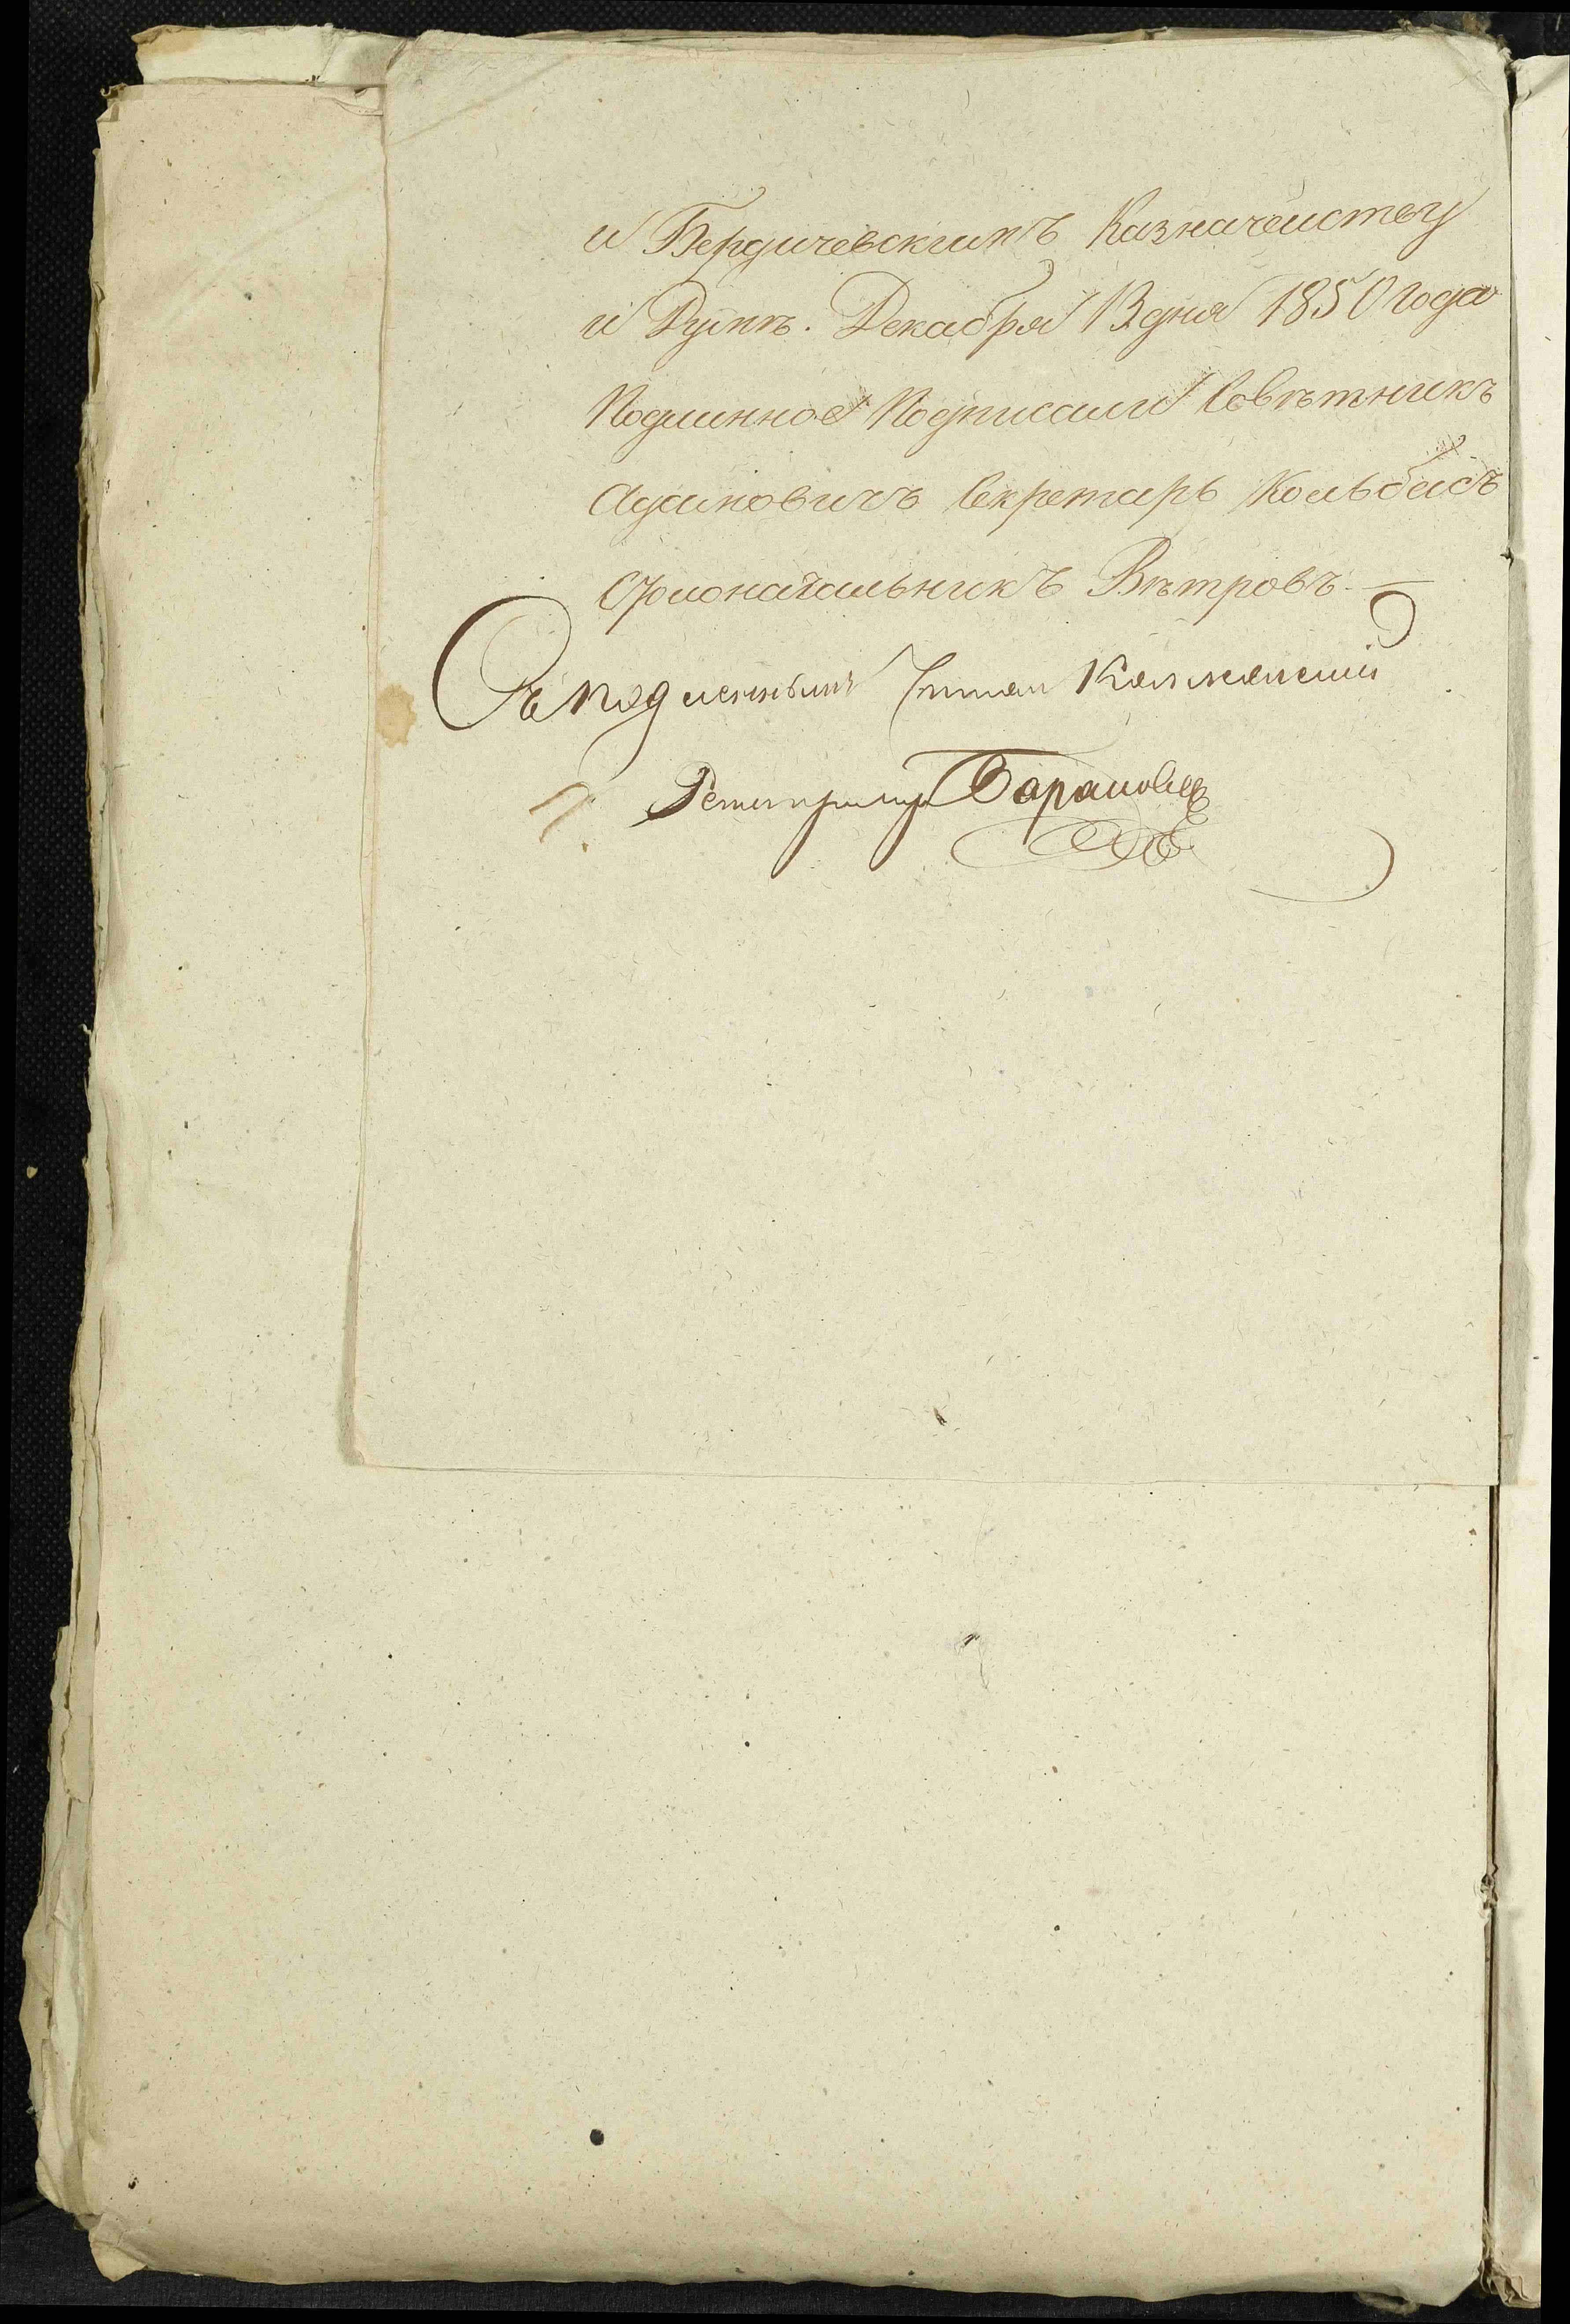 и Бердичевскимъ Казначейству
и Думѣ. Декабря 13 дня 1850 года
Подлинное Подписали Совѣтникъ
Адамовичъ Секретарь Кольбасъ
Столоначальникъ Вѣтровъ. —
Съ подлиннымъ Читал
Регистраторъ Барановъ